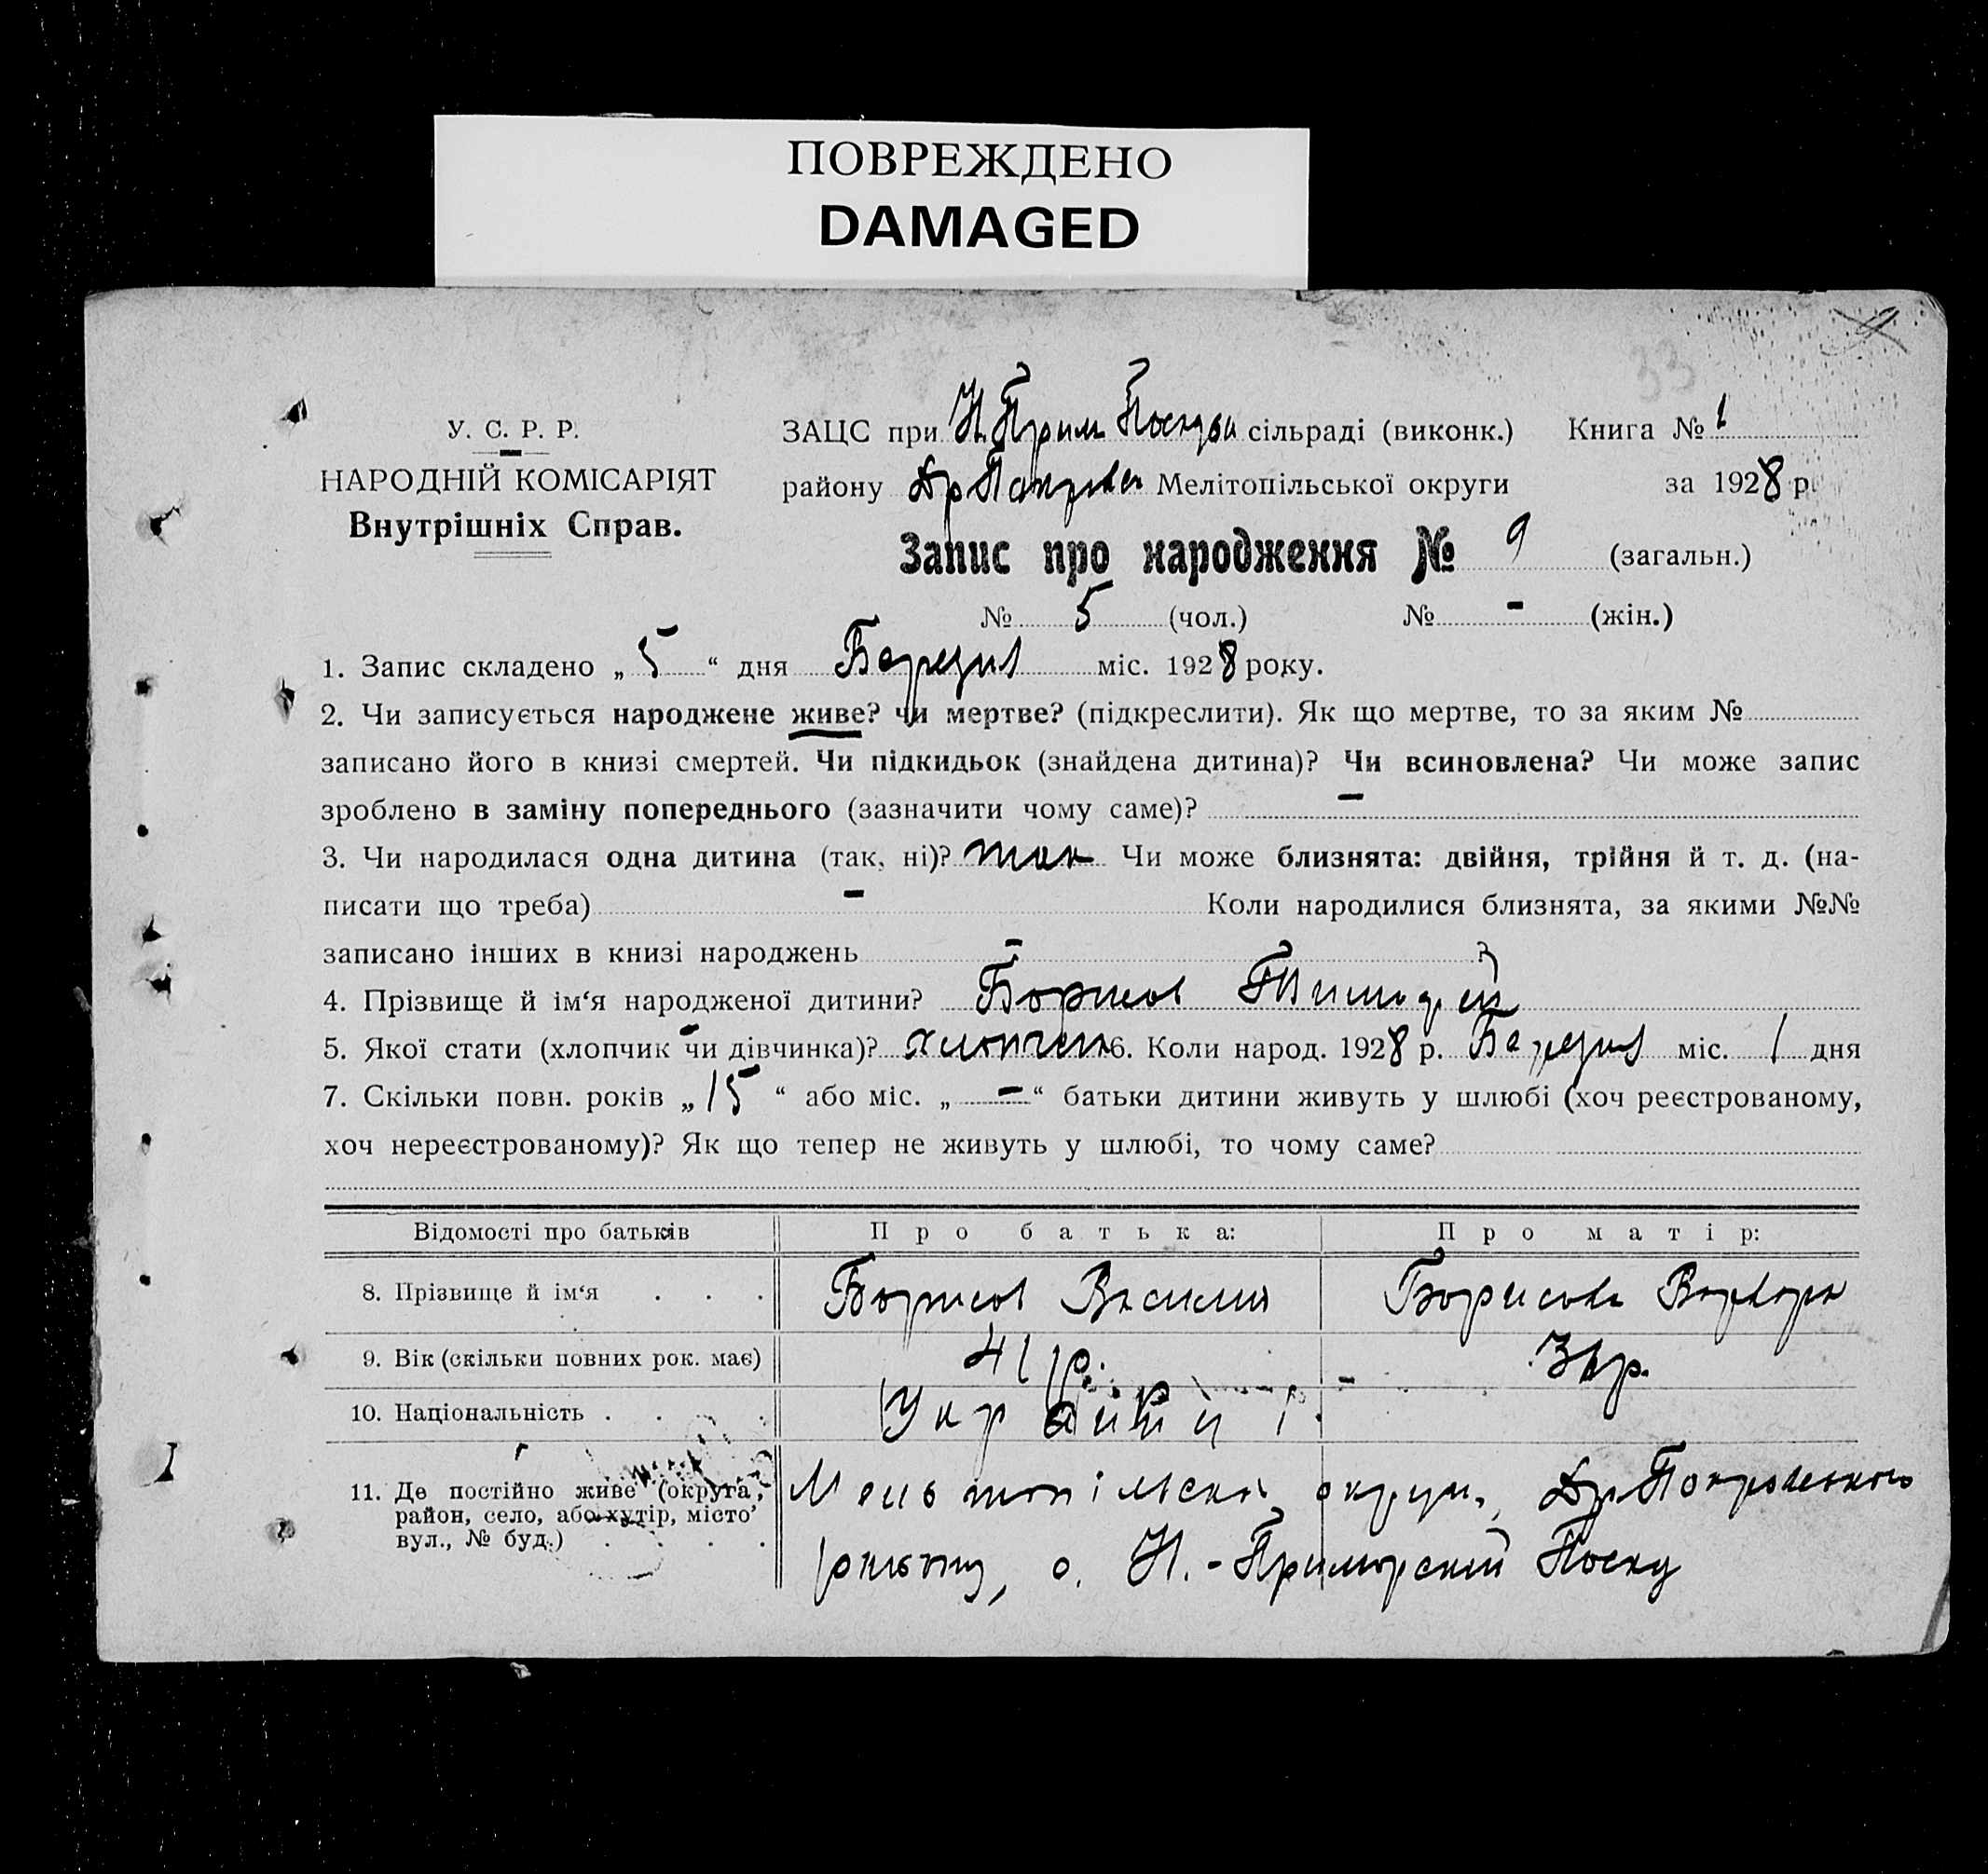 ПОВРЕЖДЕНО
DAMAGED
33
У. С. Р. Р.
НАРОДНІЙ КОМІСАРІЯТ
Внутрішніх Справ.
ЗАЦС при Н. Прим Посуди сільраді (виконк.) Книга № 1
району Др Покровс Мелітопільської округи за 1928 р.
Запис про народження № 9 (загальн.)
№ 5 (чол.) № - (жін.)
1. Запис складено „ 5 “ дня Березня міс. 1928 року.
2. Чи записується народжене живе? чи мертве? (підкреслити). Як що мертве, то за яким №
записано його в книзі смертей. Чи підкидьок (знайдена дитина)? Чи всиновлена? Чи може запис
зроблено в заміну попереднього (зазначити чому саме)? -
3. Чи народилася одна дитина (так, ні)? так Чи може близнята: двійня, трійня й т. д. (на-
писати що треба) - Коли народилися близнята, за якими №№
записано інших в книзі народжень -
4. Прізвище й ім‘я народженої дитини? Борисов Тимофей
5. Якої стати (хлопчик чи дівчинка)? хлопчик 6. Коли народ. 1928 р. Березня міс. 1 дня
7. Скільки повн. років „ 15 “ або міс. „ - “ батьки дитини живуть у шлюбі (хоч реєстрованому,
хоч нереєстрованому)? Як що тепер не живуть у шлюбі, то чому саме?
Відомості про батьків Про батька: Про матір:
8. Прізвище й ім‘я . . . Борисов Василий Борисова Варвара
9. Вік (скільки повних рок. має) 41 р.
10. Національність . . .
11. Де постійно живе (округа, район, село, або хутір, місто вул., № буд.) . . . .
округи, Др. Покровського
району, с. Н.-Приморский Посад